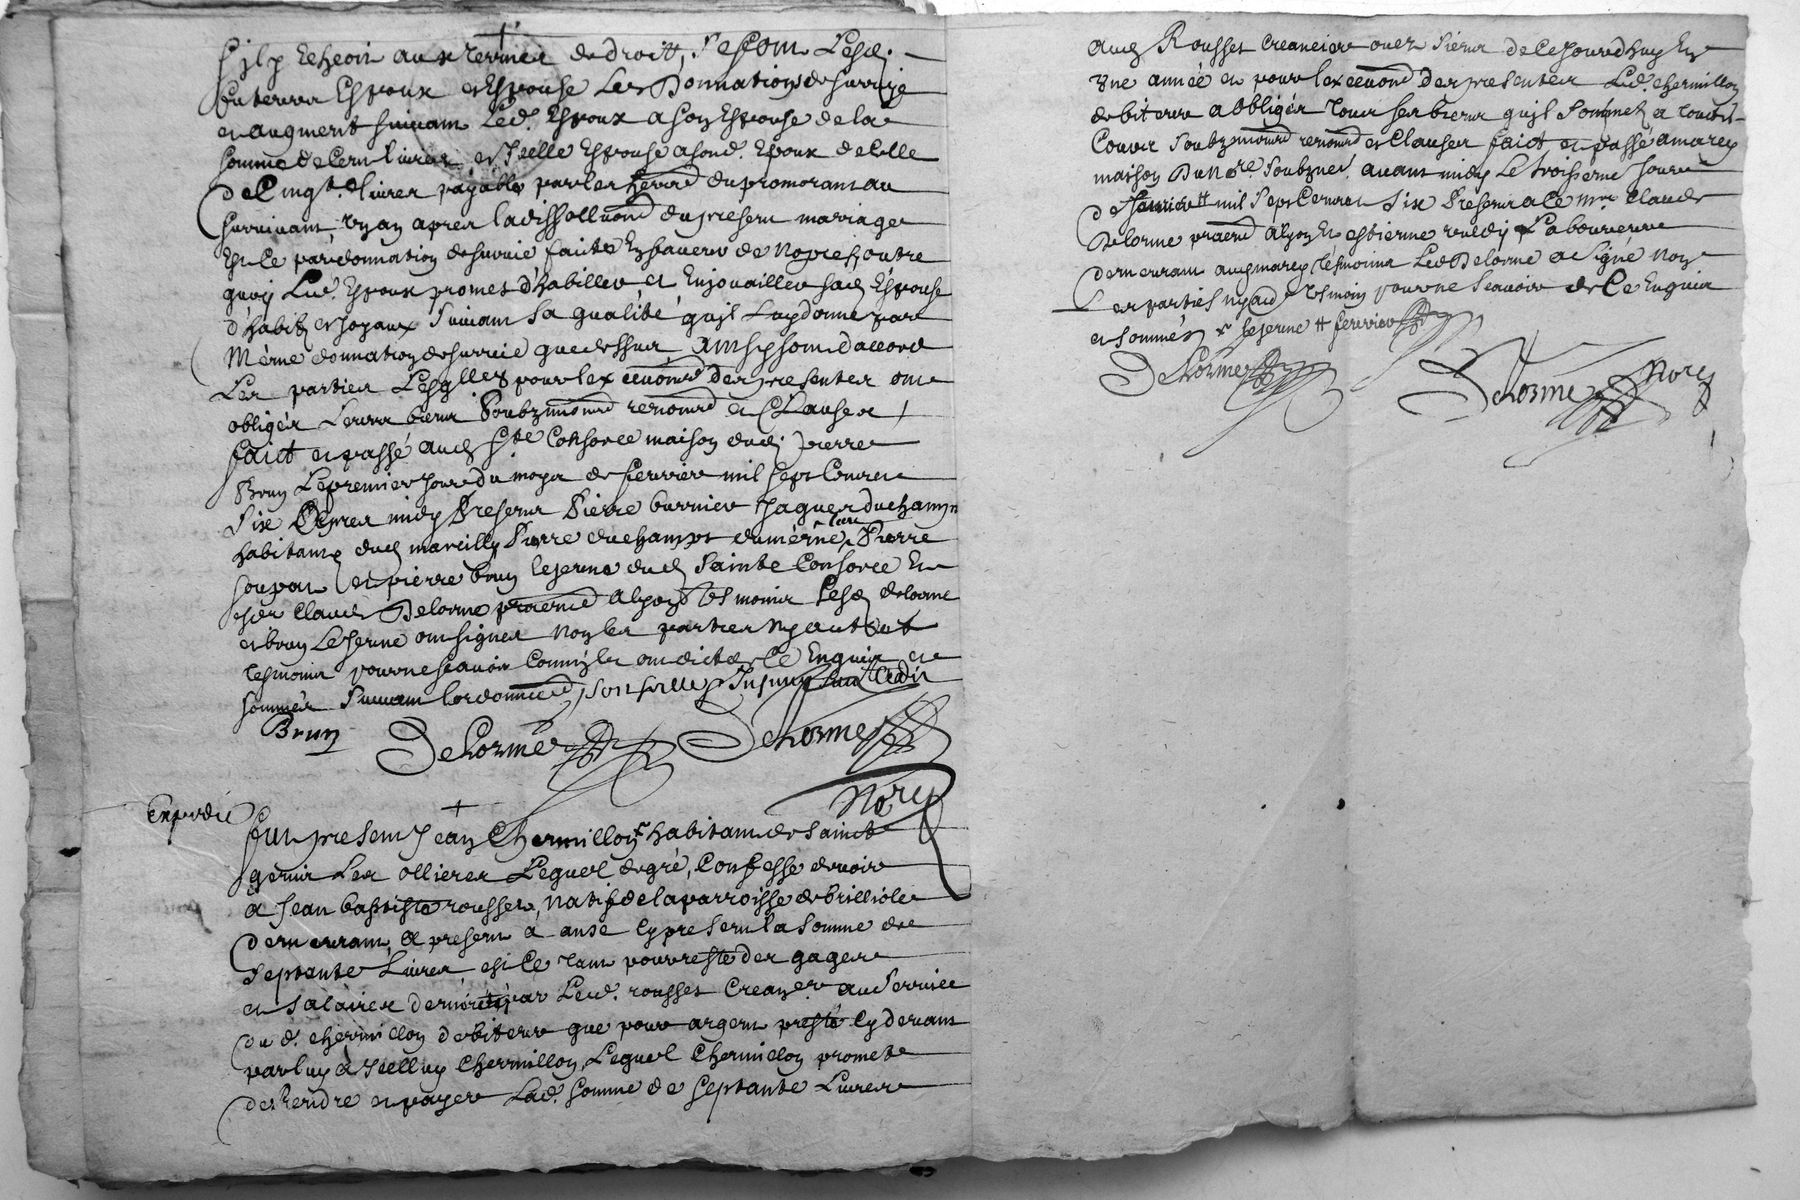 s'il y echeoir aux termes de droitt, se font lesd.
futeurs Espoux et Espouse les Donnations de survie
et augment suivant Led. Espoux a son Espouse de la
somme de Cent livres et Icelle Espouse a sond. Epoux de celle
de Cinqte livres payable par les du promorant au
survivant, un an apres la dissolluond du present mariage
Est ce par donnation de survie faite En faveur de Nopces outre
quoy Led. Espoux promet d'habiller et Enjouailler sad. Espouse
d'habits et Joyaux suivant sa qualité qu'il luy donne par
Mème donnation de survie que dessus, Ainsy sont d'accord
Les parties Lesqlles pour lex des presentes ont
obligés Leurs biens Soubzmond renond et Clauses /
faict et passé aud. Ste Consorce maison dud. pierre
Brun Le premier Jour du moys de feuvrier mil sept Cents
Six Apres midy Presents Pierre burnier Jaques duchamp
habitants dud. marcilly Pierre duchampt du même lieu Pierre
soupat et pierre brun le jeune dud. Sainte Consorce Et
sieur Claude Delorme praticd a lyon tesmoins Lesd. delorme
et brun Le Jeune ont signes Non les parties Ny aut
tesmoins pour ne scavoir Comm'ils ont dict de Ce Enquis et
sommés suivant l'ordonnand
Brun Delorme Delorme
Nore
Expedié
+
fut present Jean Chermillon habitant de Sainct
genis Les ollieres Lequel de gré, Confesse devoir
a Jean baptiste rousset, Natif de la parroisse de brilliole
demeurant A present a anse Cy present la somme de
septante Livres et Ce tant pour reste des gages
et salaires par Led. rousset Creancr au service
du d. chermillon debiteur que pour argent presté Cy devant
par luy a Icelluy Chermillon, Lequel Chermillon promet
de rendre et payer Lad. somme de septante Livres
aud. Rousset Creancier ou es siens de Ce Jourdhuy En
Une année et pour lex des presentes Led. chermillon
debiteur a obligés tous ses biens qu'il sommet a touttes
Cours Soubzmond renond et Clauses faict et passé a marcy
maison Du nore Soubzne avant midy Le troisieme Jour
de tt mil Sept Cents Six Presents a Ce mre Claude
Delorme praticd a lyon Et estienne Laboureur
demeurant aud. marcy tesmoins Led. Delorme a signé Non
Les parties Ny aud tesmoin pour ne scavoir de Ce Enquis
et sommés
Delorme Delorme Nore